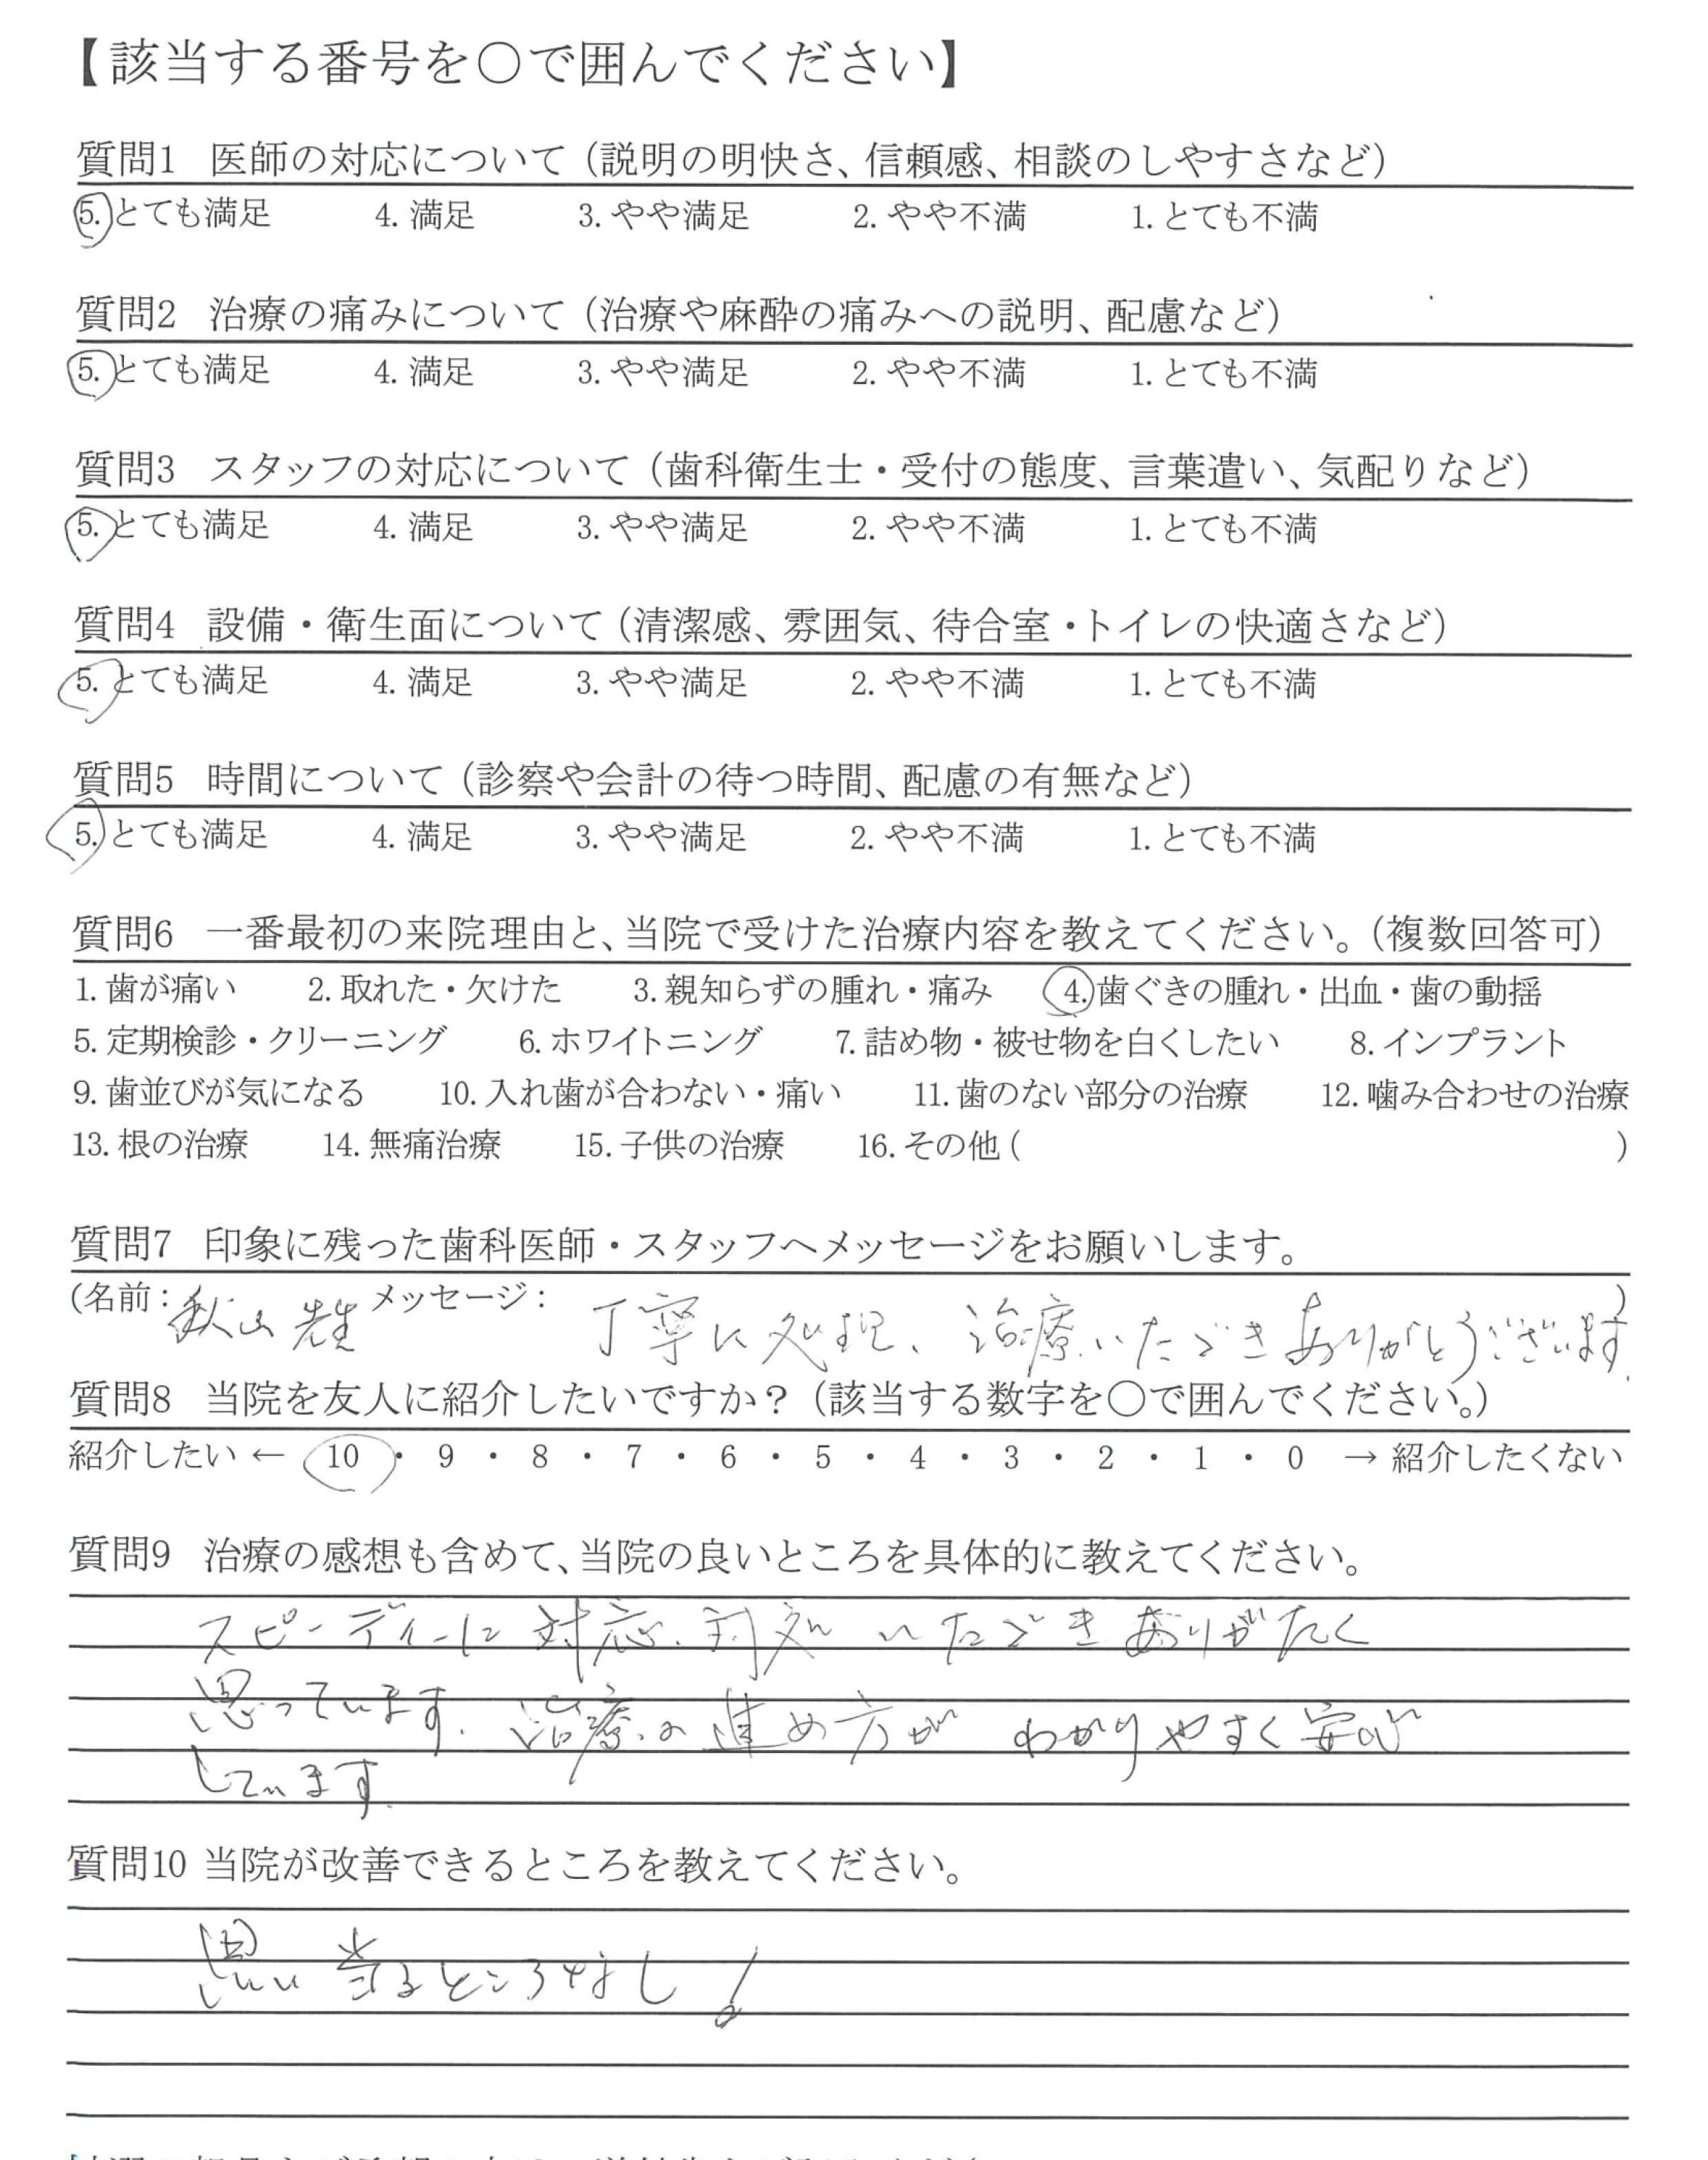 【該当する番号を○で囲んでください】
質問1 医師の対応について（説明の明快さ、信頼感、相談のしやすさなど）
5. とても満足 4. 満足 3. やや満足 2. やや不満 1. とても不満
質問2 治療の痛みについて（治療や麻酔の痛みへの説明、配慮など）
5. とても満足 4. 満足 3. やや満足 2. やや不満 1. とても不満
質問3 スタッフの対応について（歯科衛生士・受付の態度、言葉遣い、気配りなど）
5. とても満足 4. 満足 3. やや満足 2. やや不満 1. とても不満
質問4 設備・衛生面について（清潔感、雰囲気、待合室・トイレの快適さなど）
5. とても満足 4. 満足 3. やや満足 2. やや不満 1. とても不満
質問5 時間について（診察や会計の待つ時間、配慮の有無など）
5. とても満足 4. 満足 3. やや満足 2. やや不満 1. とても不満
質問6 一番最初の来院理由と、当院で受けた治療内容を教えてください。（複数回答可）
1. 歯が痛い 2. 取れた・欠けた 3. 親知らずの腫れ・痛み 4. 歯ぐきの腫れ・出血・歯の動揺
5. 定期検診・クリーニング 6. ホワイトニング 7. 詰め物・被せ物を白くしたい 8. インプラント
9. 歯並びが気になる 10. 入れ歯が合わない・痛い 11. 歯のない部分の治療 12. 噛み合わせの治療
13. 根の治療 14. 無痛治療 15. 子供の治療 16. その他（ ）
質問7 印象に残った歯科医師・スタッフへメッセージをお願いします。
（名前：秋山先生 メッセージ： 丁寧に処理、治療いただきありがとうございます。）
質問8 当院を友人に紹介したいですか？（該当する数字を○で囲んでください。）
紹介したい ← 10 ・ 9 ・ 8 ・ 7 ・ 6 ・ 5 ・ 4 ・ 3 ・ 2 ・ 1 ・ 0 → 紹介したくない
質問9 治療の感想も含めて、当院の良いところを具体的に教えてください。
スピーディーに対応、対処いただきありがたく
思っています。治療の進め方がわかりやすく安心
しています。
質問10 当院が改善できるところを教えてください。
思い当るところなし！